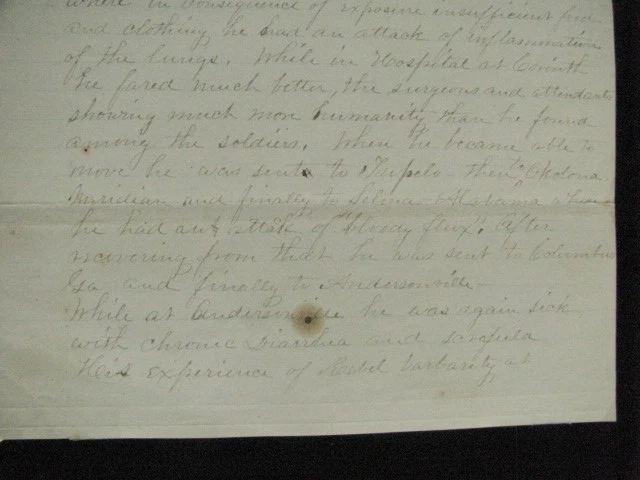 where in consequence of exposure insufficient food
and clothing he had an attack of inflammation
of the lungs. While in Hospital at Corinth
he fared much better, the surgeons and attendants
showing much more humanity than he found
among the soldiers. When he became able to
move he was sent to Tupelo - then to Okolona
Meridian and finally to Selma - Alabama where
he had an attack of "bloody flux". After
recovering from that he was sent to Columbus
Ga and finally to Andersonville -
While at Andersonville he was again sick
with chronic Diarrhea and scrofula
His experience of Rebel barbarity at